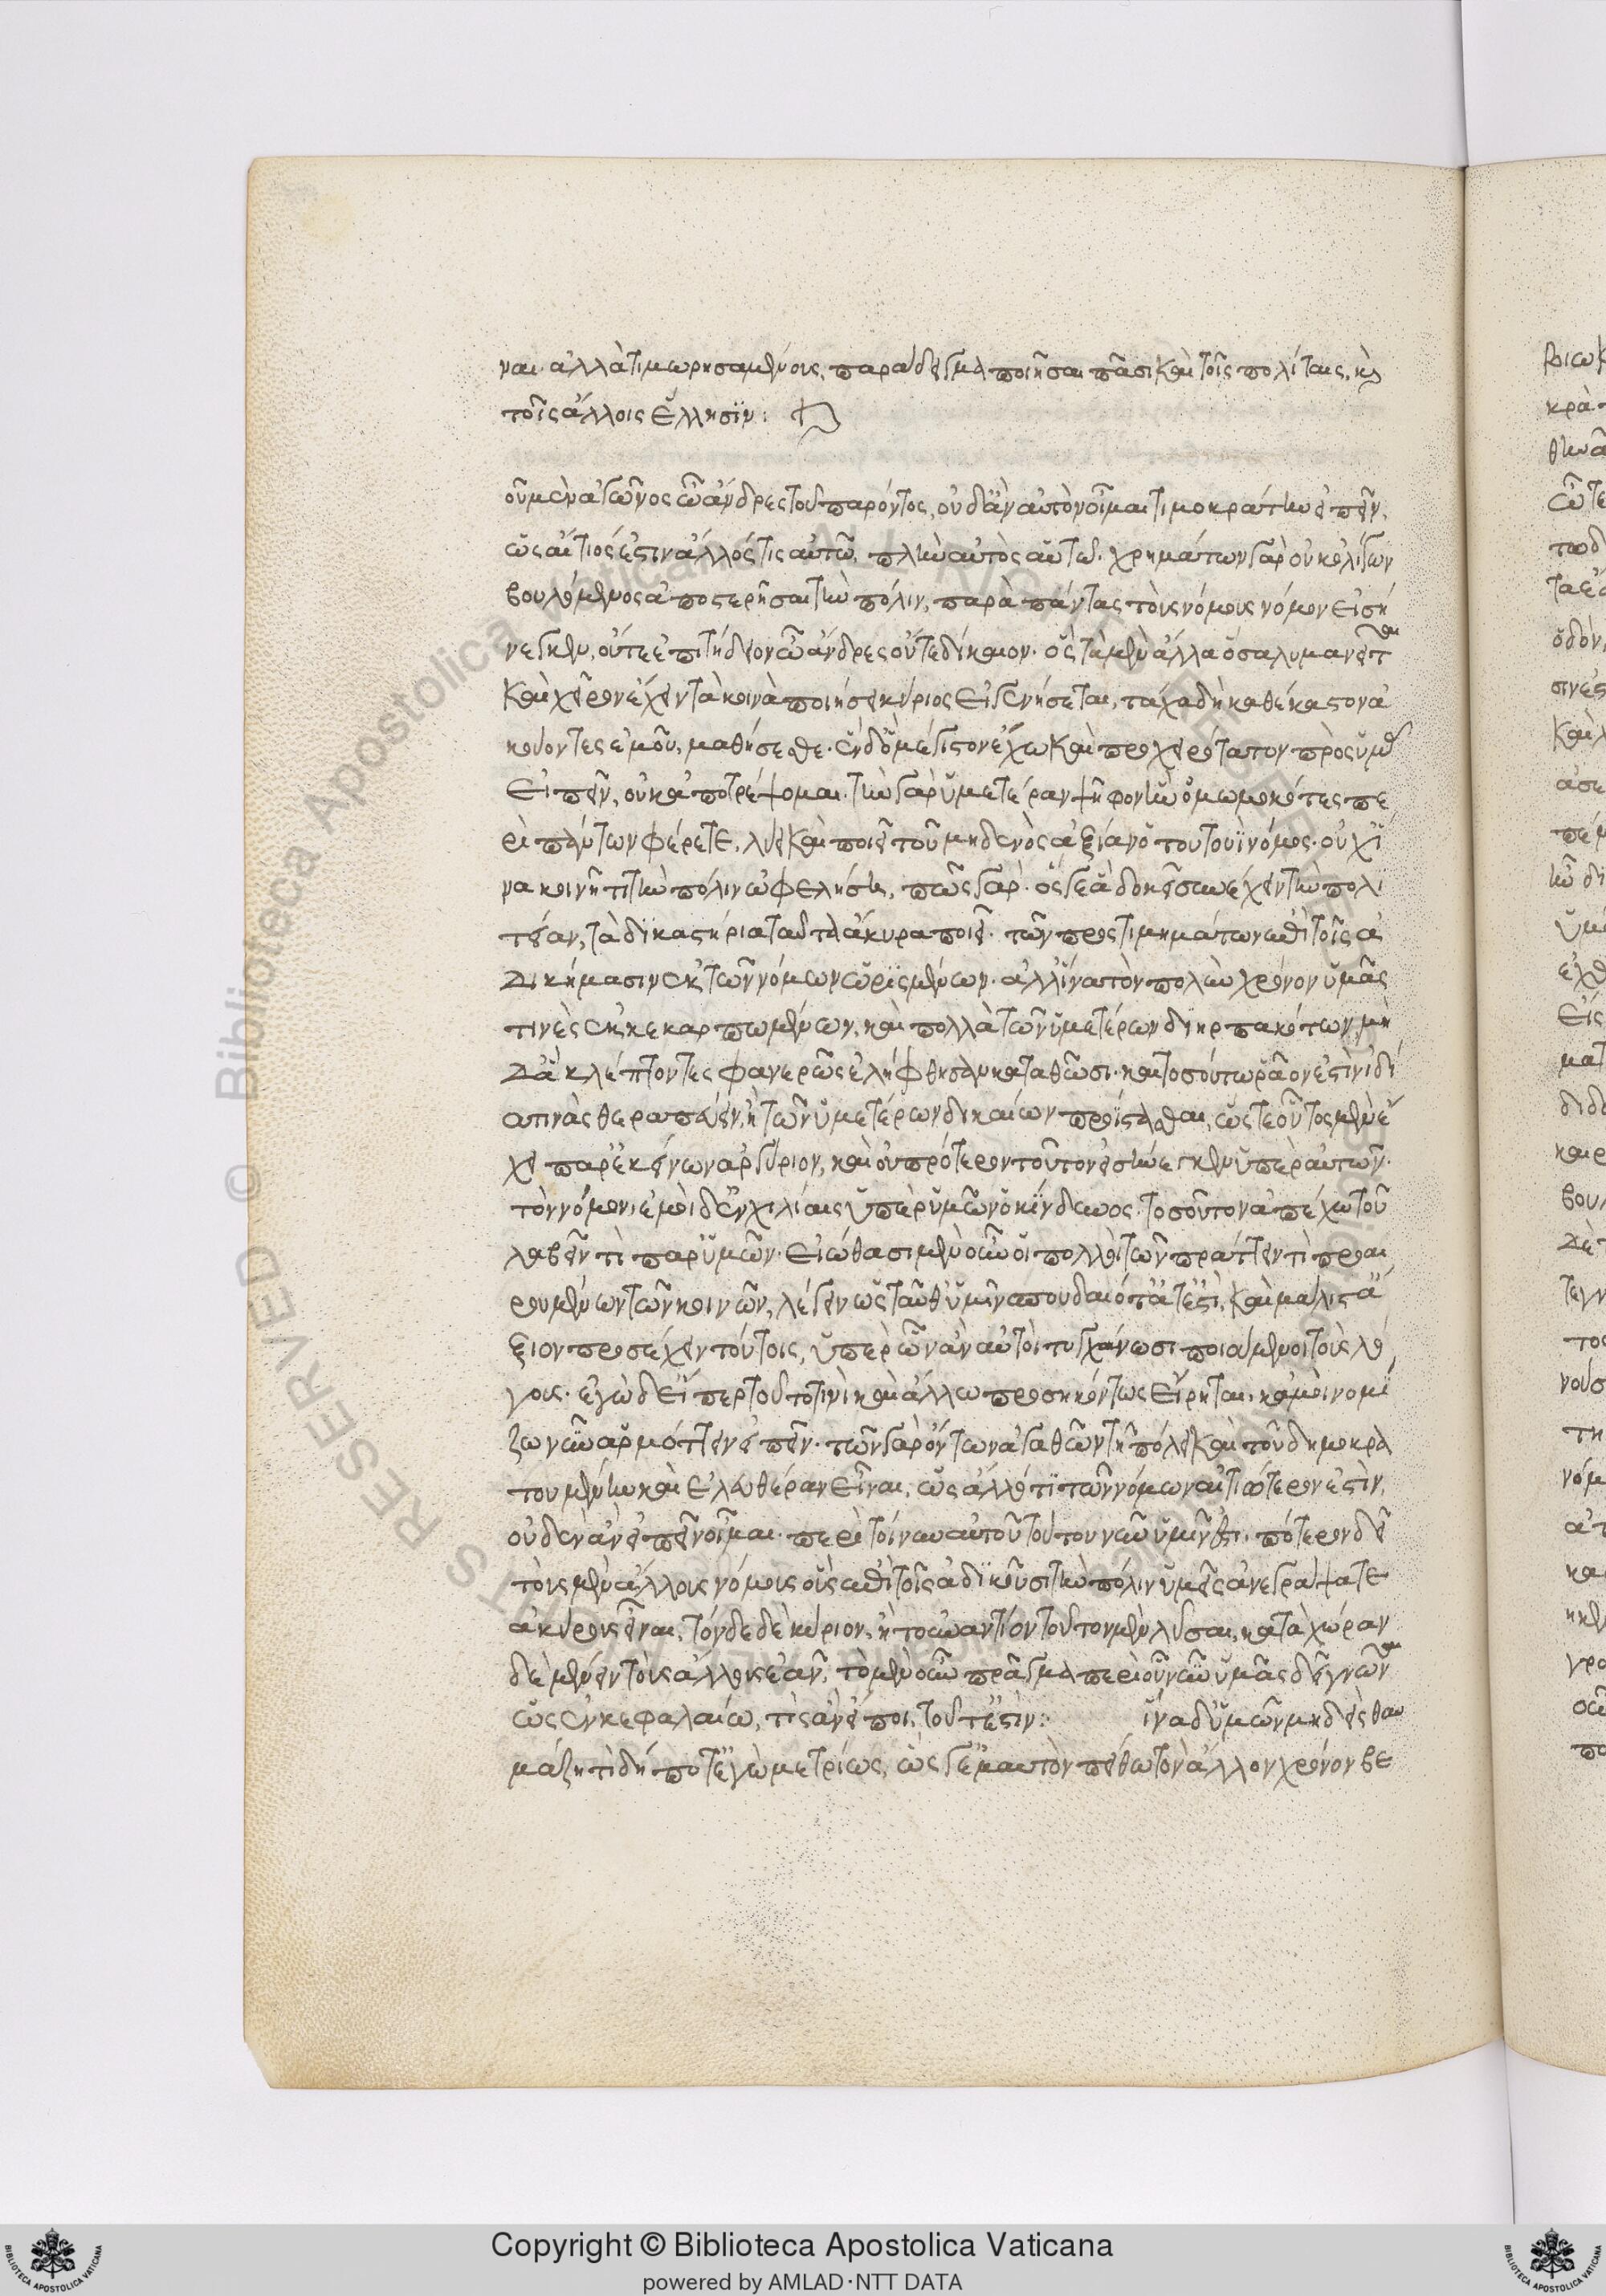 ναι. ἀλλὰ τιμωρησαμένους, παράδειγμα ποιῆσαι πᾶσι καὶ τοῖς πολίταις, καὶ
τοῖς ἄλλοις ἕλλησιν:
οῦ μὲν ἀγῶνος ὦ ἄνδρες τοῦ παρόντος, οὐδ' ἂν αὐτὸν οἶμαι τιμοκράτην εἰπεῖν,
ὡς αἴτιός ἐστιν ἄλλός τις αὐτῶ, πλὴν αὐτὸς αὑτῶ. χρημάτων γὰρ οὐκ ὀλίγων
βουλόμενος ἀποστερῆσαι τὴν πόλιν, παρὰ πάντας τοὺς νόμους νόμον εἰσή
νεγκεν, οὔτε ἐπιτήδειον ὦ ἄνδρες οὔτε δίκαιον. ὃς τὰ μὲν ἄλλα ὅσα λυμανεῖται
καὶ χεῖρον ἔχειν τὰ κοινὰ ποιήσει κύριος εἰ γενήσεται, τάχα δὴ καθέκαστον ἀ
κούοντες ἐμοῦ, μαθήσεσθε. ἓν δ' ὃ μέγιστον ἔχω καὶ προχειρότατον πρὸς ὑμᾶς
εἰπεῖν, οὐκ ἀποτρέψομαι. τὴν γὰρ ὑμετέραν ψῆφον ἣν ὀμωμοκότες πε
ρὶ πάντων φέρετε, λύει καὶ ποιεῖ τοῦ μηδενὸς ἀξίαν ὁ τουτουῒ νόμος. οὐχ ἵ
να κοινῆ τι τὴν πόλιν ὠφελήση, πῶς γὰρ. ὅς γε ἃ δοκεῖ συνέχειν τὴν πολι
τείαν, τὰ δικαστήρια ταῦτα ἄκυρα ποιεῖ. τῶν προστιμημάτων ἐπὶ τοῖς ἀ
δικήμασιν ἐκ τῶν νόμων ὡρισμένων. ἀλλ' ἵνα τὸν πολὺν χρόνον ὑμᾶς
τινὲς ἐκκεκαρπωμένων, καὶ πολλὰ τῶν ὑμετέρων διηρπακότων, μὴ
δ' ἃ κλέπτοντες φανερῶς ἐλήφθησαν καταθῶσι. καὶ τοσούτω ῥᾶόν ἐστιν ἰδί
α τινὰς θεραπεύειν, ἢ τῶν ὑμετέρων δικαίων προΐστασθαι, ὥστε οὗτος μὲν ἔ
χει παρ' ἐκείνων ἀργύριον, καὶ οὐ πρότερον τοῦτον εἰσήνεγκεν ὑπὲρ αὐτῶν
τὸν νόμον, ἐμοὶ δ' ἐν χιλίαις ὑπὲρ ὑμῶν ὁ κίνδυνος. τοσοῦτον ἀπέχω τοῦ
λαβεῖν τὶ παρ' ὑμῶν. εἰώθασι μὲν οὖν οἱ πολλοὶ τῶν πράττειν τὶ προαι
ρουμένων τῶν κοινῶν, λέγειν ὡς ταῦθ' ὑμῖν σπουδαιότατ' ἐστὶ, καὶ μάλιστ' ἄ
ξιον προσέχειν τούτοις, ὑπὲρ ὧν ἂν αὐτοὶ τυγχάνωσι ποιούμενοι τοὺς λό
γους. ἐγὼ δ' εἴπερ τοῦτο τινὶ καὶ ἄλλω προσηκόντως εἴρηται, κἀμοὶ νομί
ζω νῦν ἁρμόττειν εἰπεῖν. τῶν γὰρ ὄντων ἀγαθῶν τῆ πόλει καὶ τοῦ δημοκρα
τουμένην καὶ ἐλευθέραν εἶναι, ὡς ἄλλό τι τῶν νόμων αἰτιώτερον ἐστὶν,
οὐδέν' ἂν εἰπεῖν οἶμαι. περὶ τοίνυν αὐτοῦ τούτου νῦν ὑμῖν ἐστι. πότερον δεῖ
τοὺς μὲν ἄλλους νόμους οὓς ἐπὶ τοῖς ἀδικοῦσι τὴν πόλιν ὑμεῖς ἀνεγράψατε
ἀκύρους εἶναι, τόνδε δὲ κύριον, ἢ τουναντίον τοῦτον μὲν λῦσαι, κατὰ χώραν
δὲ μένειν τοὺς ἄλλους ἐᾶν, τὸ μὲν οὖν πρᾶγμα περὶ οὗ νῦν ὑμᾶς δεῖ γνῶναι
ὡς ἐν κεφαλαίω, τὶς ἂν εἴποι, τοῦτ' ἐστίν: ἵνα δ' ὑμῶν μηδεὶς θαυ
μάζη τὶ δή ποτ' ἐγὼ μετρίως, ὥς γ' ἐμαυτὸν πείθω τὸν ἄλλον χρόνον βε